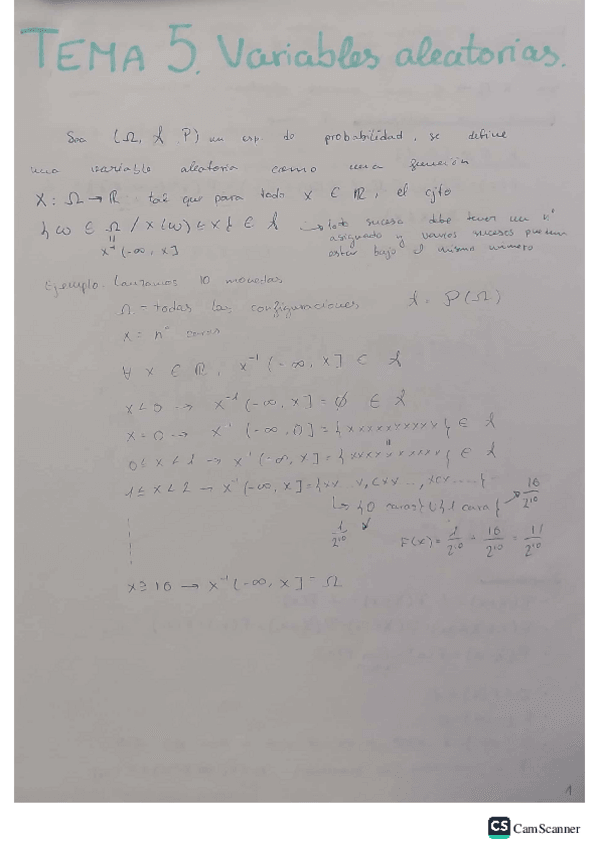 TEMA 5. Variables aleatorias.
Sea (Ω, A, P) un esp. de probabilidad, se define
una variable aleatoria como una función
X: Ω → ℝ tal que para todo x ∈ ℝ, el cjto
{ω ∈ Ω / X(ω) ≤ x} ∈ A → todo suceso debe tener un nº
asignado y varios sucesos pueden
estar bajo el mismo número
=
X⁻¹(-∞, x]
Ejemplo. Lanzamos 10 monedas
Ω - todas las configuraciones A = P(Ω)
X = nº caras
∀ x ∈ ℝ, X⁻¹(-∞, x] ∈ A
x < 0 → X⁻¹(-∞, x] = ∅ ∈ A
x = 0 → X⁻¹(-∞, 0] = {xxxxxxxxxx} ∈ A
0 ≤ x < 1 → X⁻¹(-∞, x] = {xxxxxxxxxx} ∈ A
1 ≤ x < 2 → X⁻¹(-∞, x] = {xx...x, cxx..., xcx...}
{0 caras} ∪ {1 cara} → 10/2¹⁰
1/2¹⁰
F(x) = 1/2¹⁰ 10/2¹⁰ = 11/2¹⁰
x ≥ 10 → X⁻¹(-∞, x] = Ω
1
CS CamScanner